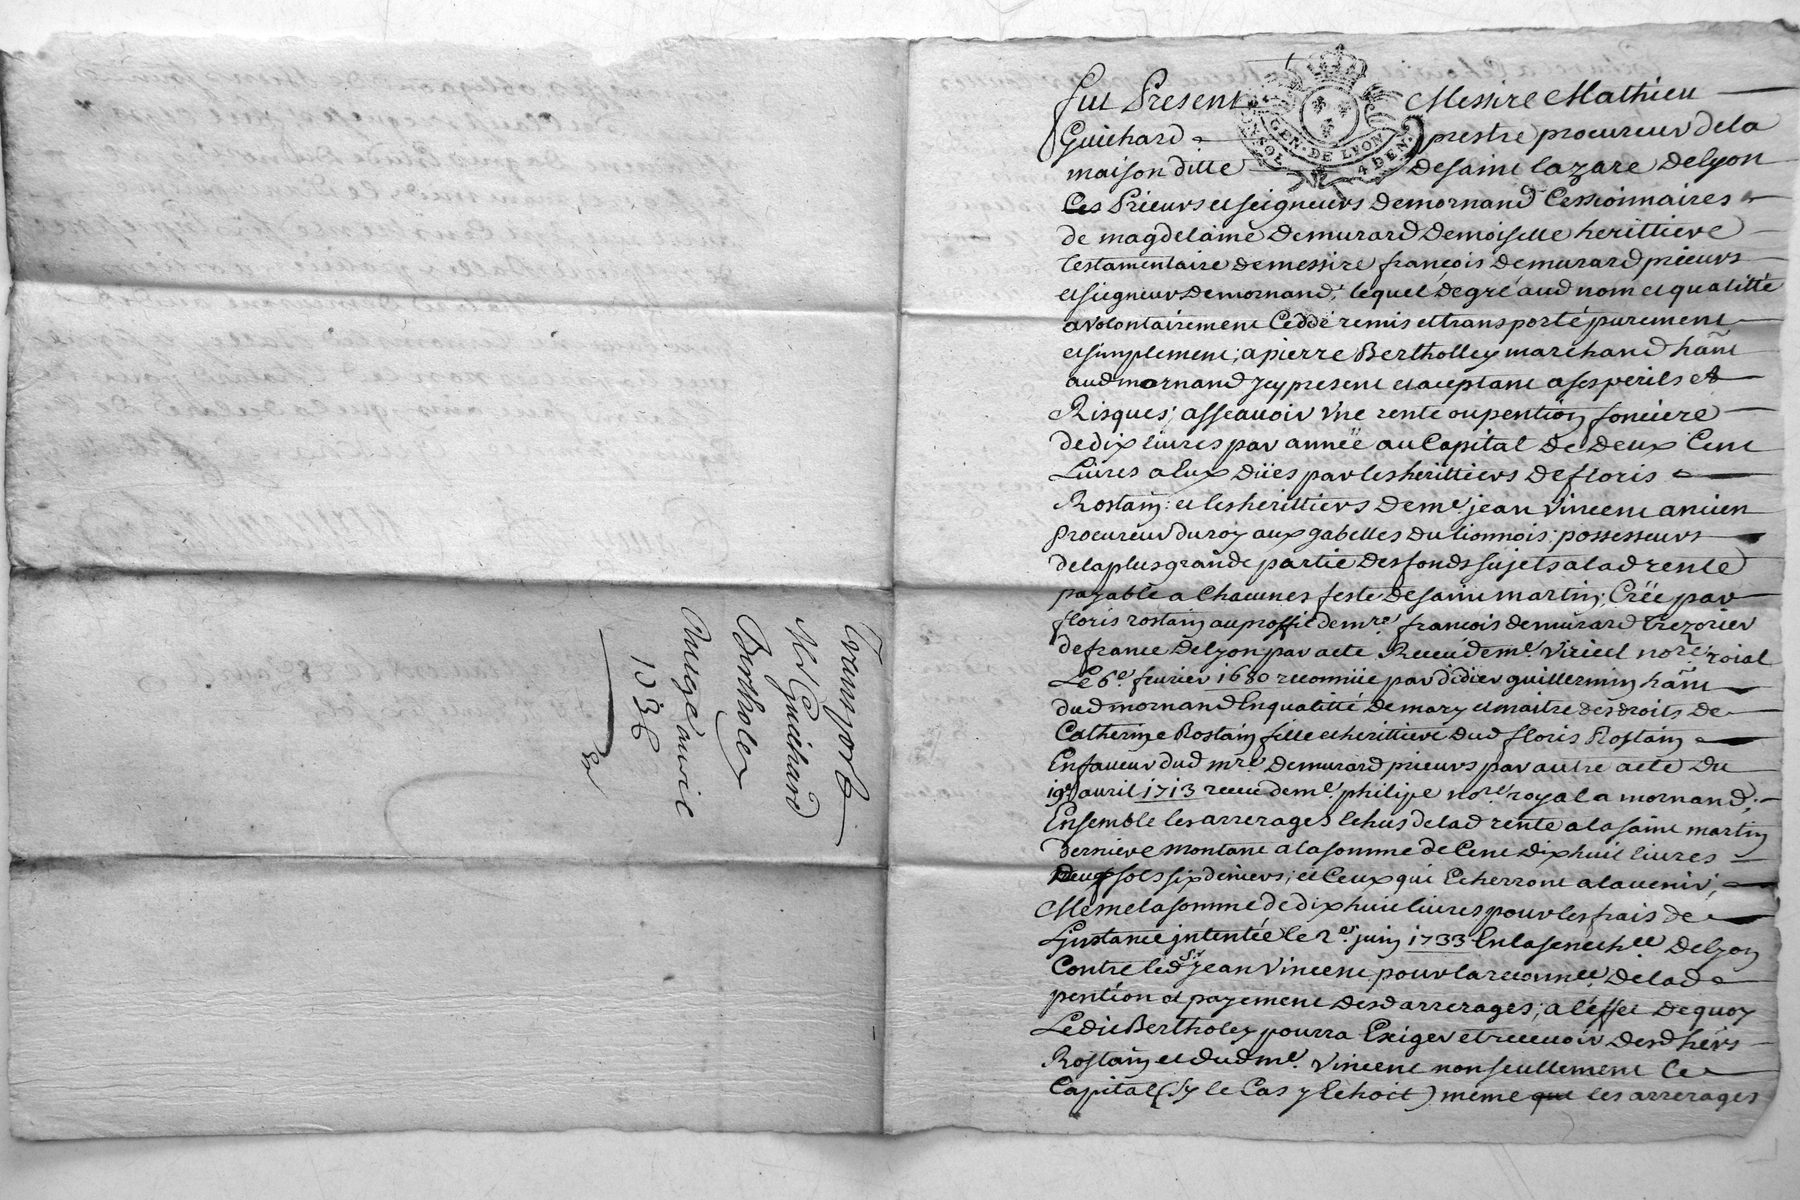 Transport
Mr Guichard
Bertholey
Du 9e avril
1736
Fut Present Messire Mathieu
Guichard prestre procureur dela
maison ditte desaint lazare delyon
GEN. DE LYON
4 DEN.
Les Prieurs et seigneurs demornand Cessionnaires
de magdelaine demurard demoiselle herittiere
testamentaire demessire françois demurard prieurs
et seigneur demornand, lequel degré aud nom et qualitté
a volontairement Ceddé remis et transporté purement
et simplement, a pierre Bertholley marchand hãnt
aud mornand jcy present et aceptant a ses perils et
Risques; assçauoir vne rente ou pention fonciere
de dix liures par année au Capital de deux Cent
Liures a lux düës par les herittiers de floris
Rostain et les herittiers de me. jean vincent ancien
procureur du roy aux gabelles du lionnois possesseurs
dela plus grande partie des fonds sujets a lad rente
payable a Chacunes feste de saint martin, Créé par
floris rostain au proffit de mre. françois demurard trezorier
de france delyon par acte Receu de me. viricel nore. roial
Le 6e. feurier 1680 reconnüe par didier guillermin hãnt
dud mornand En qualitté de mary et maitre des droits de
Catherine Rostain fille et herittiere dud floris Rostain
En faueur dud mre. Demurard prieurs par autre acte du
19e. auril 1713 receu de me. philipe nore. royal a mornand;
Ensemble les arrerages Echus de lad rente a la saint martin
derniere montant a la somme de Cent dix huit liures
sols six deniers, et Ceux qui Echerront a lauenir,
Meme la somme de dix huit liures pour les frais de
Ljnstance jntentée le 2er juin 1733 En la senechee delyon
Contre led sr jean Vincent pour la reconnce. de lad
pention et payement desd arrerages, a l'effet dequoy
Ledit Bertholey pourra Exiger et receuoir desd hers
Rostain et dud me. vincent non seullement le
Capital (sy le Cas y Echoit) même que les arrerages